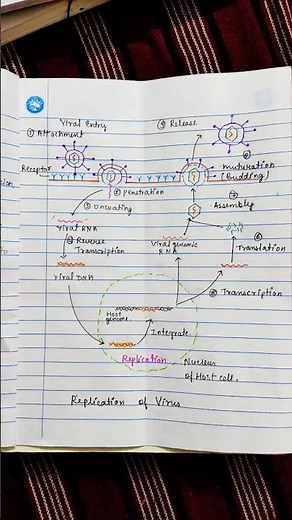 Viral Entry
① Attachment
Receptor
② penetration
③ Uncoating
Viral RNA
④ Reverse
Transcription
Viral DNA
Host
genome
Integrate
Replication
Nucleus
of Host cell.
⑤ Transcription
Viral genomic
RNA
⑥
Translation
⑦
Assembly
⑧
maturation
(Budding)
⑨ Release
Replication of Virus